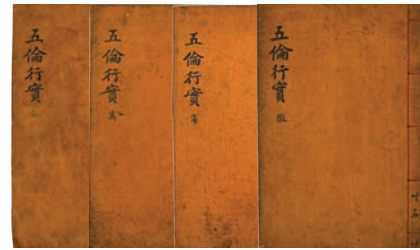 五倫行實
五倫行實
五倫行實
五倫行實 徵